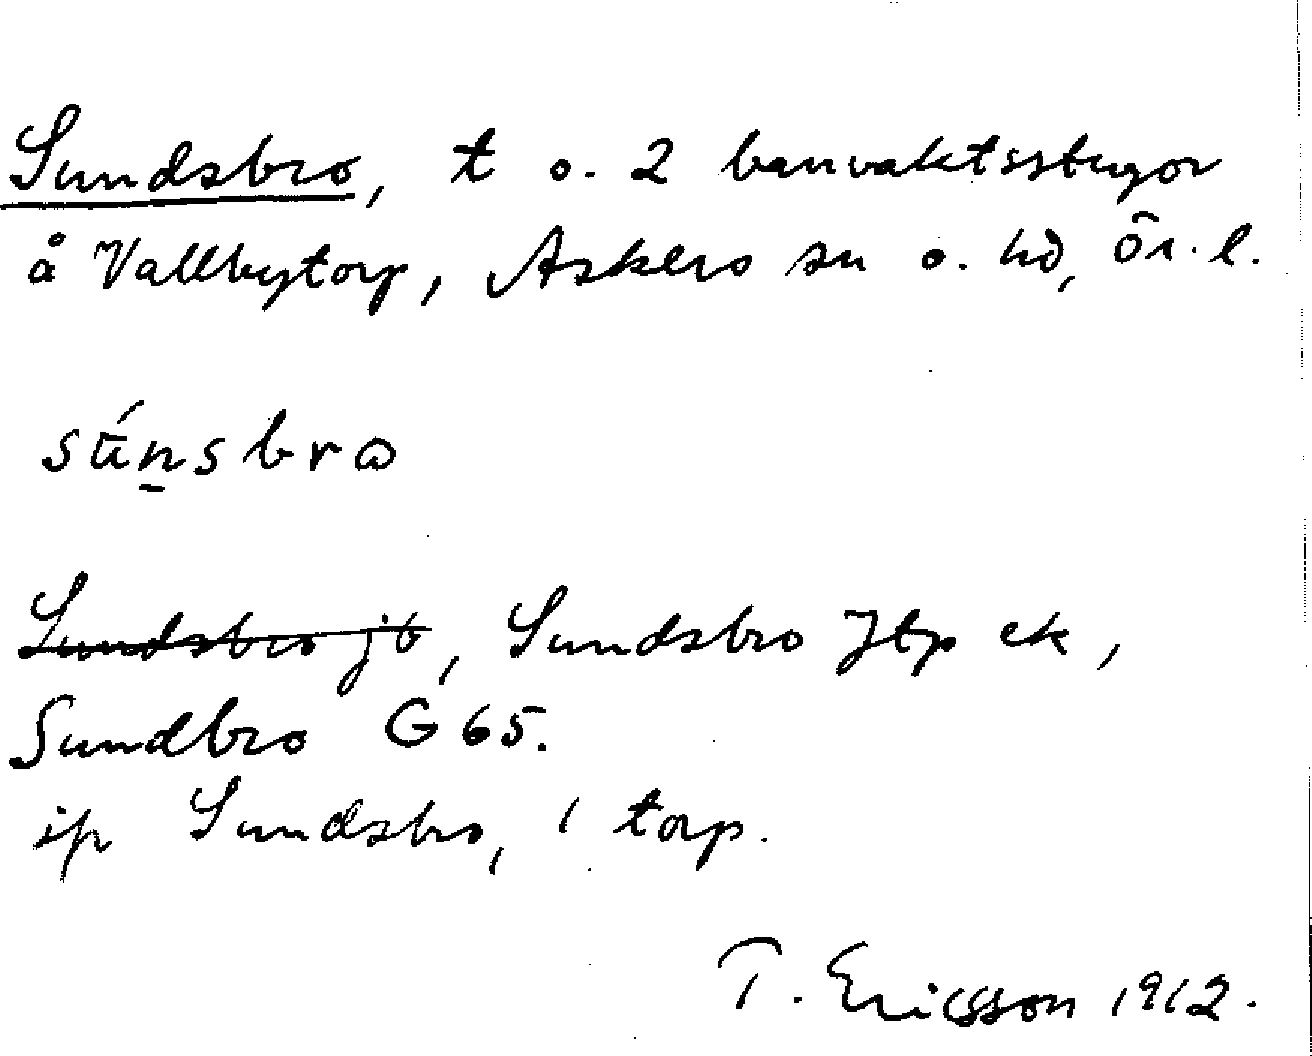 Sundsbro, t o. 2 banvaktsstugor
å Vallbytorp, Askers sn o. hd, Ör. l.
sún̠sbrω
Sundsbro jb, Sundsbro Jtp ek,
Sundbro G 65.
ip Sundsbro, 1 torp.
T. Ericsson 1912.